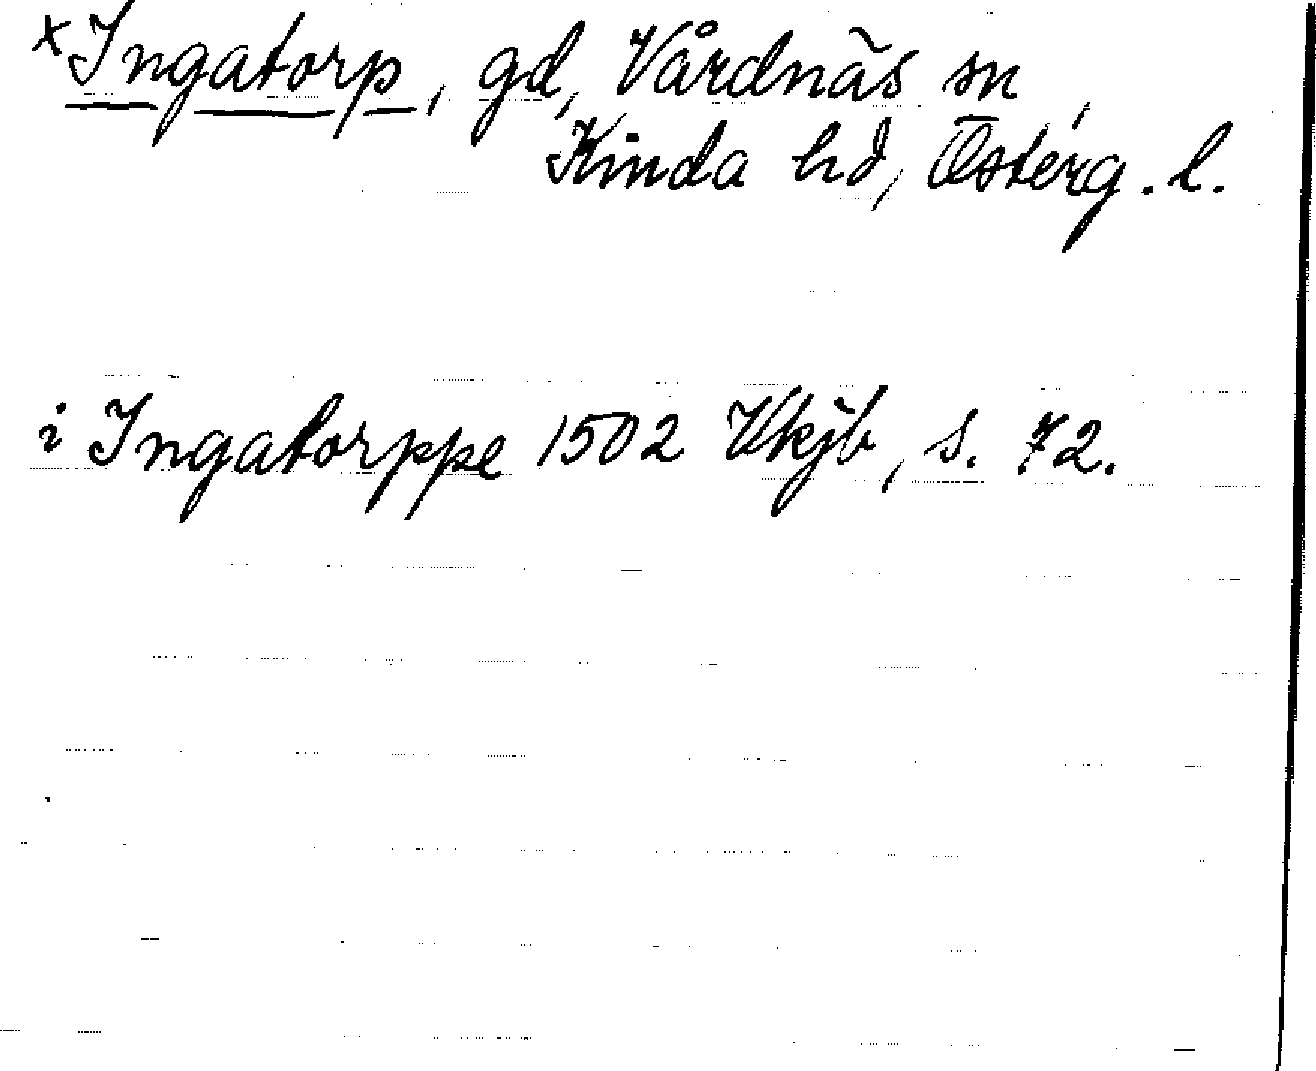 x Ingatorp, gd, Vårdnäs sn,
Kinda hd, Österg. l.
i Ingatorppe 1502 Vkjb, s. 72.